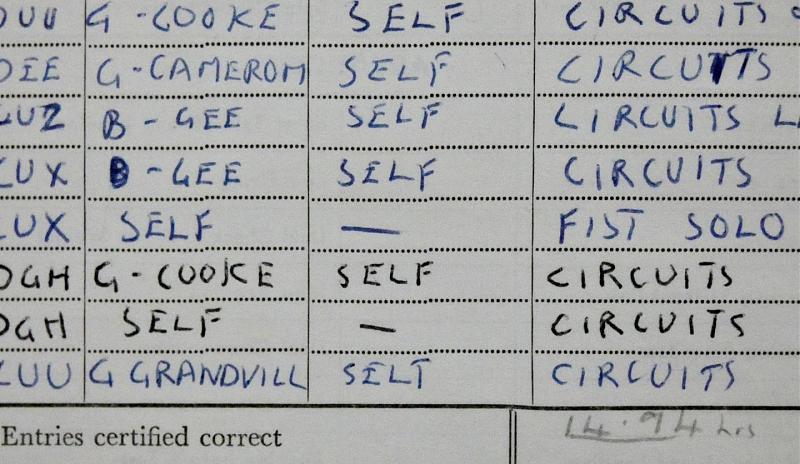 OUU G - COOKE SELF CIRCUITS
OEE G - CAMEROM SELF CIRCUTTS
LUZ B - GEE SELF CIRCUITS
LUX B - GEE SELF CIRCUITS
LUX SELF — FIST SOLO
OGH G - COOKE SELF CIRCUITS
OGH SELF — CIRCUITS
LUU G GRANDVILL SELT CIRCUITS
Entries certified correct 14.94 hrs